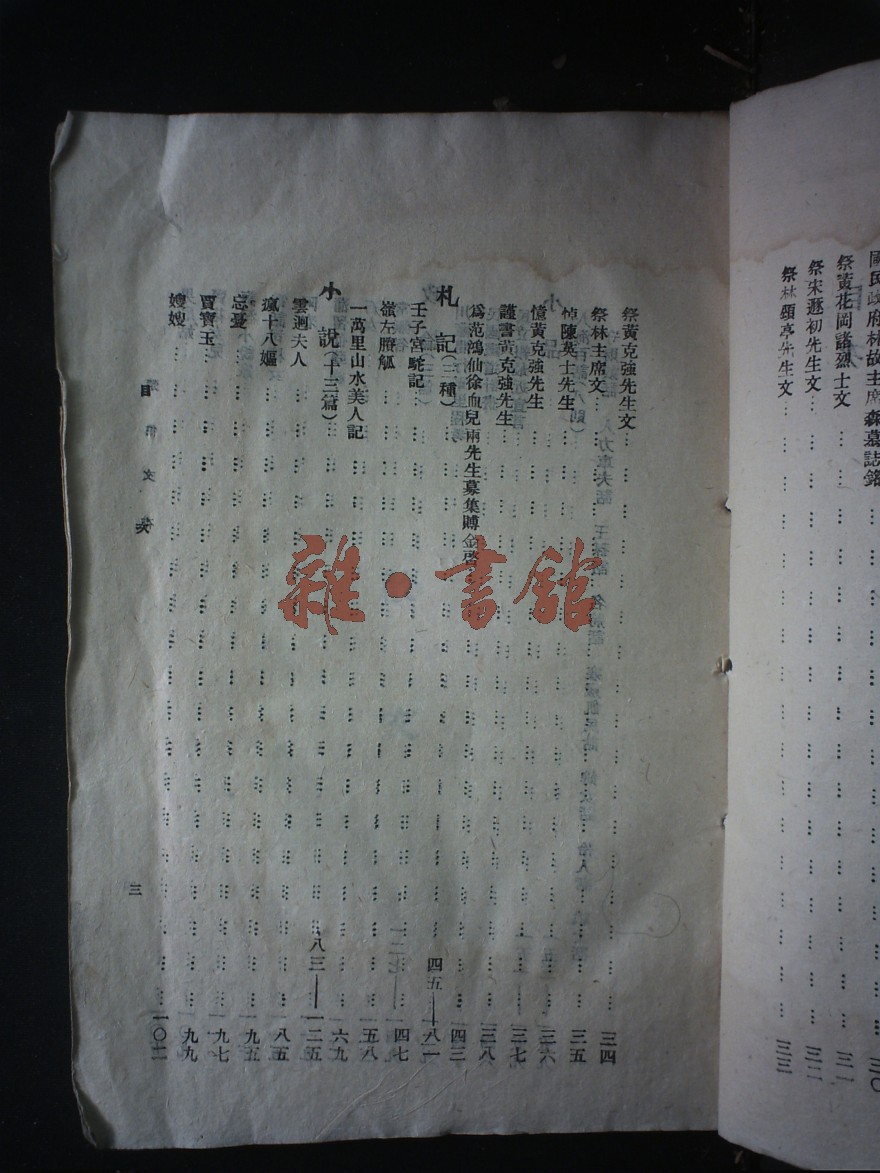 國民政府林故主席森墓誌銘 三〇
祭黃花岡諸烈士文 三一
祭宋遯初先生文 三二
祭林頌亭先生文 三三
祭黃克強先生文 三四
祭林主席文 三五
悼陳英士先生 三六
憶黃克強先生 三七
護書黃克強先生 三八
爲范鴻仙徐血兒兩先生募集賻金啓 四三
札記(三種) 四五——八一
壬子宮駝記 四七
嶺左臍觚 五八
一萬里山水美人記 六九
小說(十三篇) 八三——一二五
雲迥夫人 八五
瘋十八嫗 九五
忘憂 九七
賈寶玉 九九
嫂嫂 一〇二
目 三
雜·書館